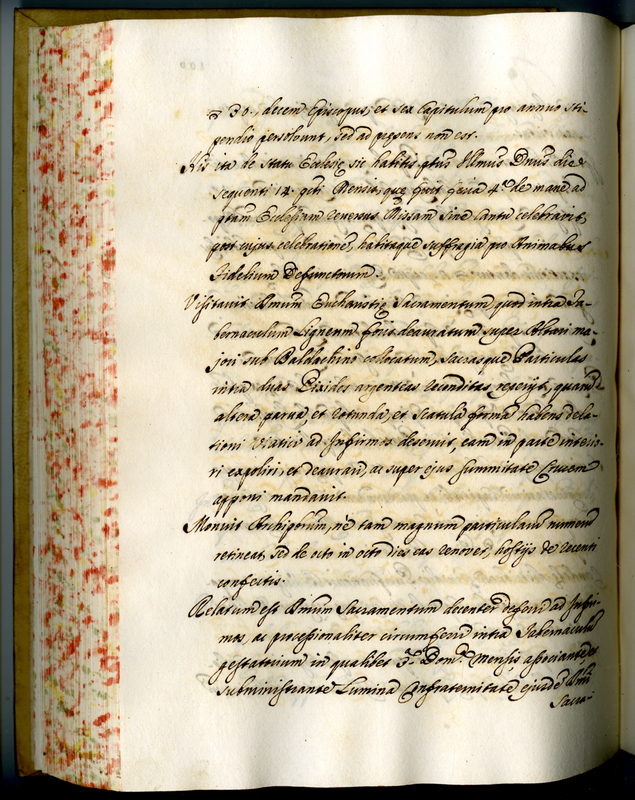 30., decem Episcopus, et sex Capitulum pro annuo sti-
pendio persolvunt, sed ad presens non est.
His ita de statu Ecclesię sic habitis ptus Illmus Dnus die
sequenti 14. pti Mensis, quę fuit feria 4.a de mane, ad
ptam Ecclesiam reversus Missam sine cantu celebravit,
post cujus celebrationē, habitaque suffragia pro Animabus
Fidelium Defunctorum.
Visitavit Smum Eucharistię Sacramentum, quod intra Ta-
bernaculum Ligneum foris deauratum super Altari ma-
jori sub Baldachino collocatum, Sacrasque Particulas
intra duas Pixides argenteas reconditas reperijt, quarū
altera parva, et rotunda, et scatulę formā habens dela-
tioni Viatici ad Infirmos deservit, eam in parte interio-
ri expoliri, et deaurari, ac super ejus summitate Crucem
apponi mandavit.
Monuit Archiprum, ne tam magnum particularū numerū
retineat, sed de octo in octo dies eas renovet, hostijs de recenti
confectis.
Relatum est Smum Sacramentum decenter deferri ad Infir-
mos, ac processionaliter circumferri intra Tabernaculū
gestatorium in qualibet 3.a Dom.a mensis associante, et
subministrante Lumina Confraternitate ejusdē Smi
Sacra-